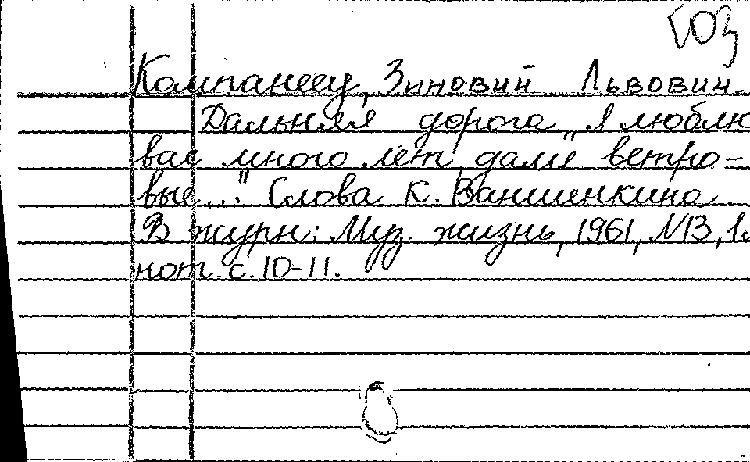 103
Компанеец, Зиновий Львович
Дальняя дорога. "Я люблю
вас много лет, дали ветро-
вые..." Слова К. Ваншенкина
В журн: Муз. жизнь, 1961, №13,
нот. с. 10-11.